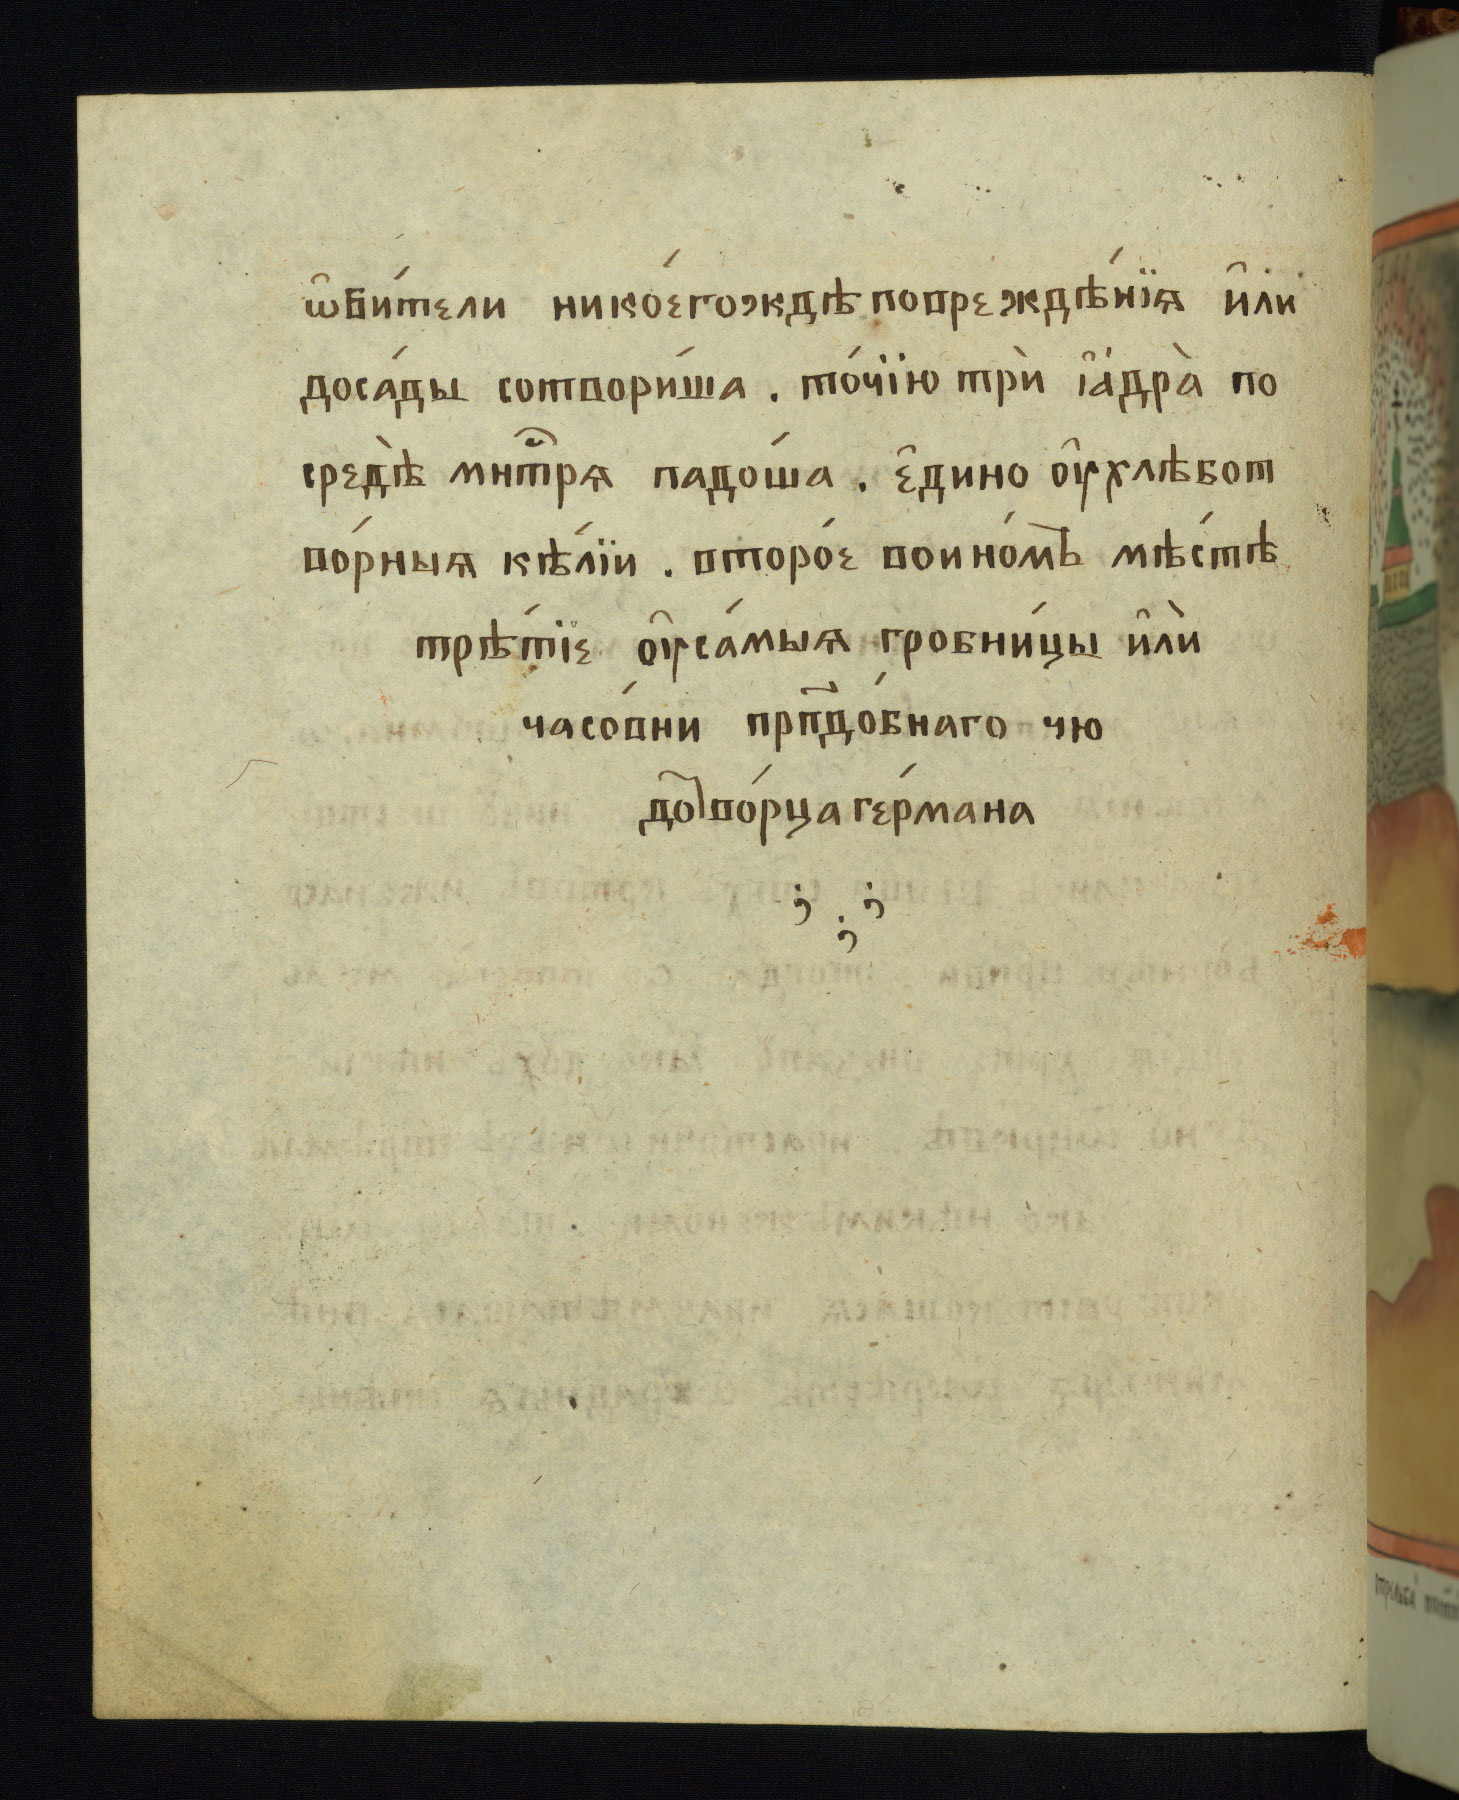 ѡ҆би́тели нико́егождѣ повреждѣ́нїѧ и҆ли
доса́ды сотвори́ша . то́чїю трѝ ꙗ҆́дра̀ по
средѣ̀ мнтⷭ҇рѧ падо́ша . є҆дино ѹ҆ хлѣбот
во́рныѧ кѣ́лїи . второ́е во ино́мъ мѣ́стѣ
трѣ́тїе ѹ҆ са́мыѧ гробни́цы и҆лѝ
часо́вни прпⷣо́бнаго чю
дотво́рца ге́рмана